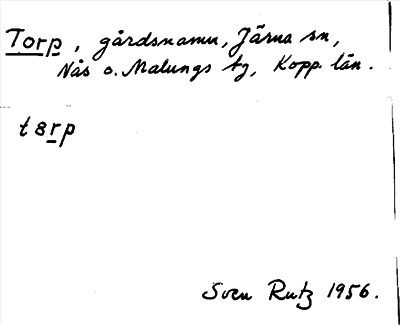 Torp, gårdsnamn, Järna sn,
Nås o. Malungs tg, Kopp. län.
t8rp
Sven Rutz 1956.